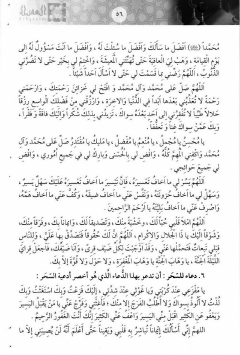 ٥٦
مُحَمَّداً أَفْضَلَ مَا سَأَلَكَ وَأَفْضَلَ مَا سُئِلْتَ لَهُ، وَأَفْضَلَ مَا أَنْتَ مَسْؤُولٌ لَهُ إِلَى
يَوْمِ الْقِيَامَةِ، وَهَبْ لِيَ الْعَافِيَةَ حَتَّى تُهَنِّئَنِي الْمَعِيشَةَ، وَاخْتِمْ لِي بِخَيْرٍ حَتَّى لَا تَضُرَّنِي
الذُّنُوبُ، اللَّهُمَّ رَضِّنِي بِمَا قَسَمْتَ لِي حَتَّى لَا أَسْأَلَ أَحَداً شَيْئاً.
اللَّهُمَّ صَلِّ عَلَى مُحَمَّدٍ وَآلِ مُحَمَّدٍ وَافْتَحْ لِي خَزَائِنَ رَحْمَتِكَ، وَارْحَمْنِي
رَحْمَةً لَا تُعَذِّبْنِي بَعْدَهَا أَبَداً فِي الدُّنْيَا وَالْآخِرَةِ، وَارْزُقْنِي مِنْ فَضْلِكَ الْوَاسِعِ رِزْقاً
حَلَالاً طَيِّباً لَا تُفْقِرْنِي إِلَى أَحَدٍ بَعْدَهُ سِوَاكَ، تَزِيدُنِي بِذَلِكَ شُكْراً وَإِلَيْكَ فَاقَةً وَفَقْراً،
وَبِكَ عَمَّنْ سِوَاكَ غِنًى وَتَعَفُّفاً.
يَا مُحْسِنُ يَا مُجْمِلُ، يَا مُنْعِمُ يَا مُفْضِلُ، يَا مَلِيكُ يَا مُقْتَدِرُ صَلِّ عَلَى مُحَمَّدٍ وَآلِ
مُحَمَّدٍ وَاكْفِنِي الْمُهِمَّ كُلَّهُ، وَاقْضِ لِي بِالْحُسْنَى وَبَارِكْ لِي فِي جَمِيعِ أُمُورِي، وَاقْضِ لِي
جَمِيعَ حَوَائِجِي.
اللَّهُمَّ يَسِّرْ لِي مَا أَخَافُ تَعْسِيرَهُ، فَإِنَّ تَيْسِيرَ مَا أَخَافُ تَعْسِيرَهُ عَلَيْكَ سَهْلٌ يَسِيرٌ،
وَسَهِّلْ لِي مَا أَخَافُ حُزُونَتَهُ، وَنَفِّسْ عَنِّي مَا أَخَافُ ضِيقَهُ، وَكُفَّ عَنِّي مَا أَخَافُ هَمَّهُ،
وَاصْرِفْ عَنِّي مَا أَخَافُ بَلِيَّتَهُ يَا أَرْحَمَ الرَّاحِمِينَ.
اللَّهُمَّ امْلَأْ قَلْبِي حُبّاً لَكَ، وَخَشْيَةً مِنْكَ، وَتَصْدِيقاً لَكَ، وَإِيمَاناً بِكَ، وَفَرَقاً مِنْكَ،
وَشَوْقاً إِلَيْكَ يَا ذَا الْجَلَالِ وَالْإِكْرَامِ، اللَّهُمَّ إِنَّ لَكَ حُقُوقاً فَتَصَدَّقْ بِهَا عَلَيَّ، وَلِلنَّاسِ
قِبَلِي تَبِعَاتٌ فَتَحَمَّلْهَا عَنِّي، وَقَدْ أَوْجَبْتَ لِكُلِّ ضَيْفٍ قِرًى، وَأَنَا ضَيْفُكَ، فَاجْعَلْ قِرَايَ
اللَّيْلَةَ الْجَنَّةَ، يَا وَهَّابَ الْجَنَّةِ يَا وَهَّابَ الْمَغْفِرَةِ، وَلَا حَوْلَ وَلَا قُوَّةَ إِلَّا بِكَ.
٦. دعاء للسَّحَر: أن تدعو بهذا الدُّعاء الذي هو أخصر أدعية السَّحَر:
يَا مَفْزَعِي عِنْدَ كُرْبَتِي وَيَا غَوْثِي عِنْدَ شِدَّتِي، إِلَيْكَ فَزِعْتُ وَبِكَ اسْتَغَثْتُ وَبِكَ
لُذْتُ لَا أَلُوذُ بِسِوَاكَ وَلَا أَطْلُبُ الْفَرَجَ إِلَّا مِنْكَ، فَأَغِثْنِي وَفَرِّجْ عَنِّي يَا مَنْ يَقْبَلُ الْيَسِيرَ
وَيَعْفُو عَنِ الْكَثِيرِ، اقْبَلْ مِنِّي الْيَسِيرَ وَاعْفُ عَنِّي الْكَثِيرَ إِنَّكَ أَنْتَ الْغَفُورُ الرَّحِيمُ.
اللَّهُمَّ إِنِّي أَسْأَلُكَ إِيمَاناً تُبَاشِرُ بِهِ قَلْبِي وَيَقِيناً حَتَّى أَعْلَمَ أَنَّهُ لَنْ يُصِيبَنِي إِلَّا مَا